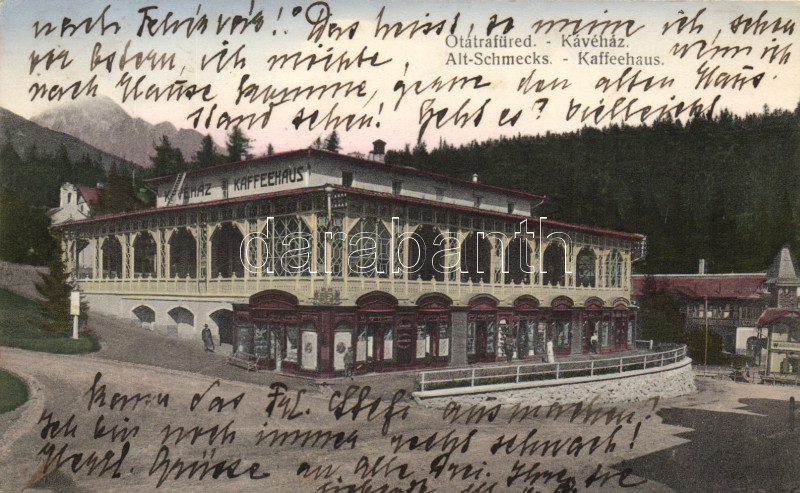 nach Felvár! Das heisst, so meine ich, schon
Ótátrafüred. - Kávéház.
Alt-Schmecks. - Kaffeehaus.
vor Ostern, ich möchte, wenn ich
nach Hause komme, gerne den alten Haus.
stand sehen! Geht es? Vielleicht
KÁVÉHÁZ KAFFEEHAUS
darabanth.com
kann das Frl. Steffi ausmachen!
Ich bin noch immer recht schwach!
Herzl. Grüsse an Alle Drei. Ihre Sie